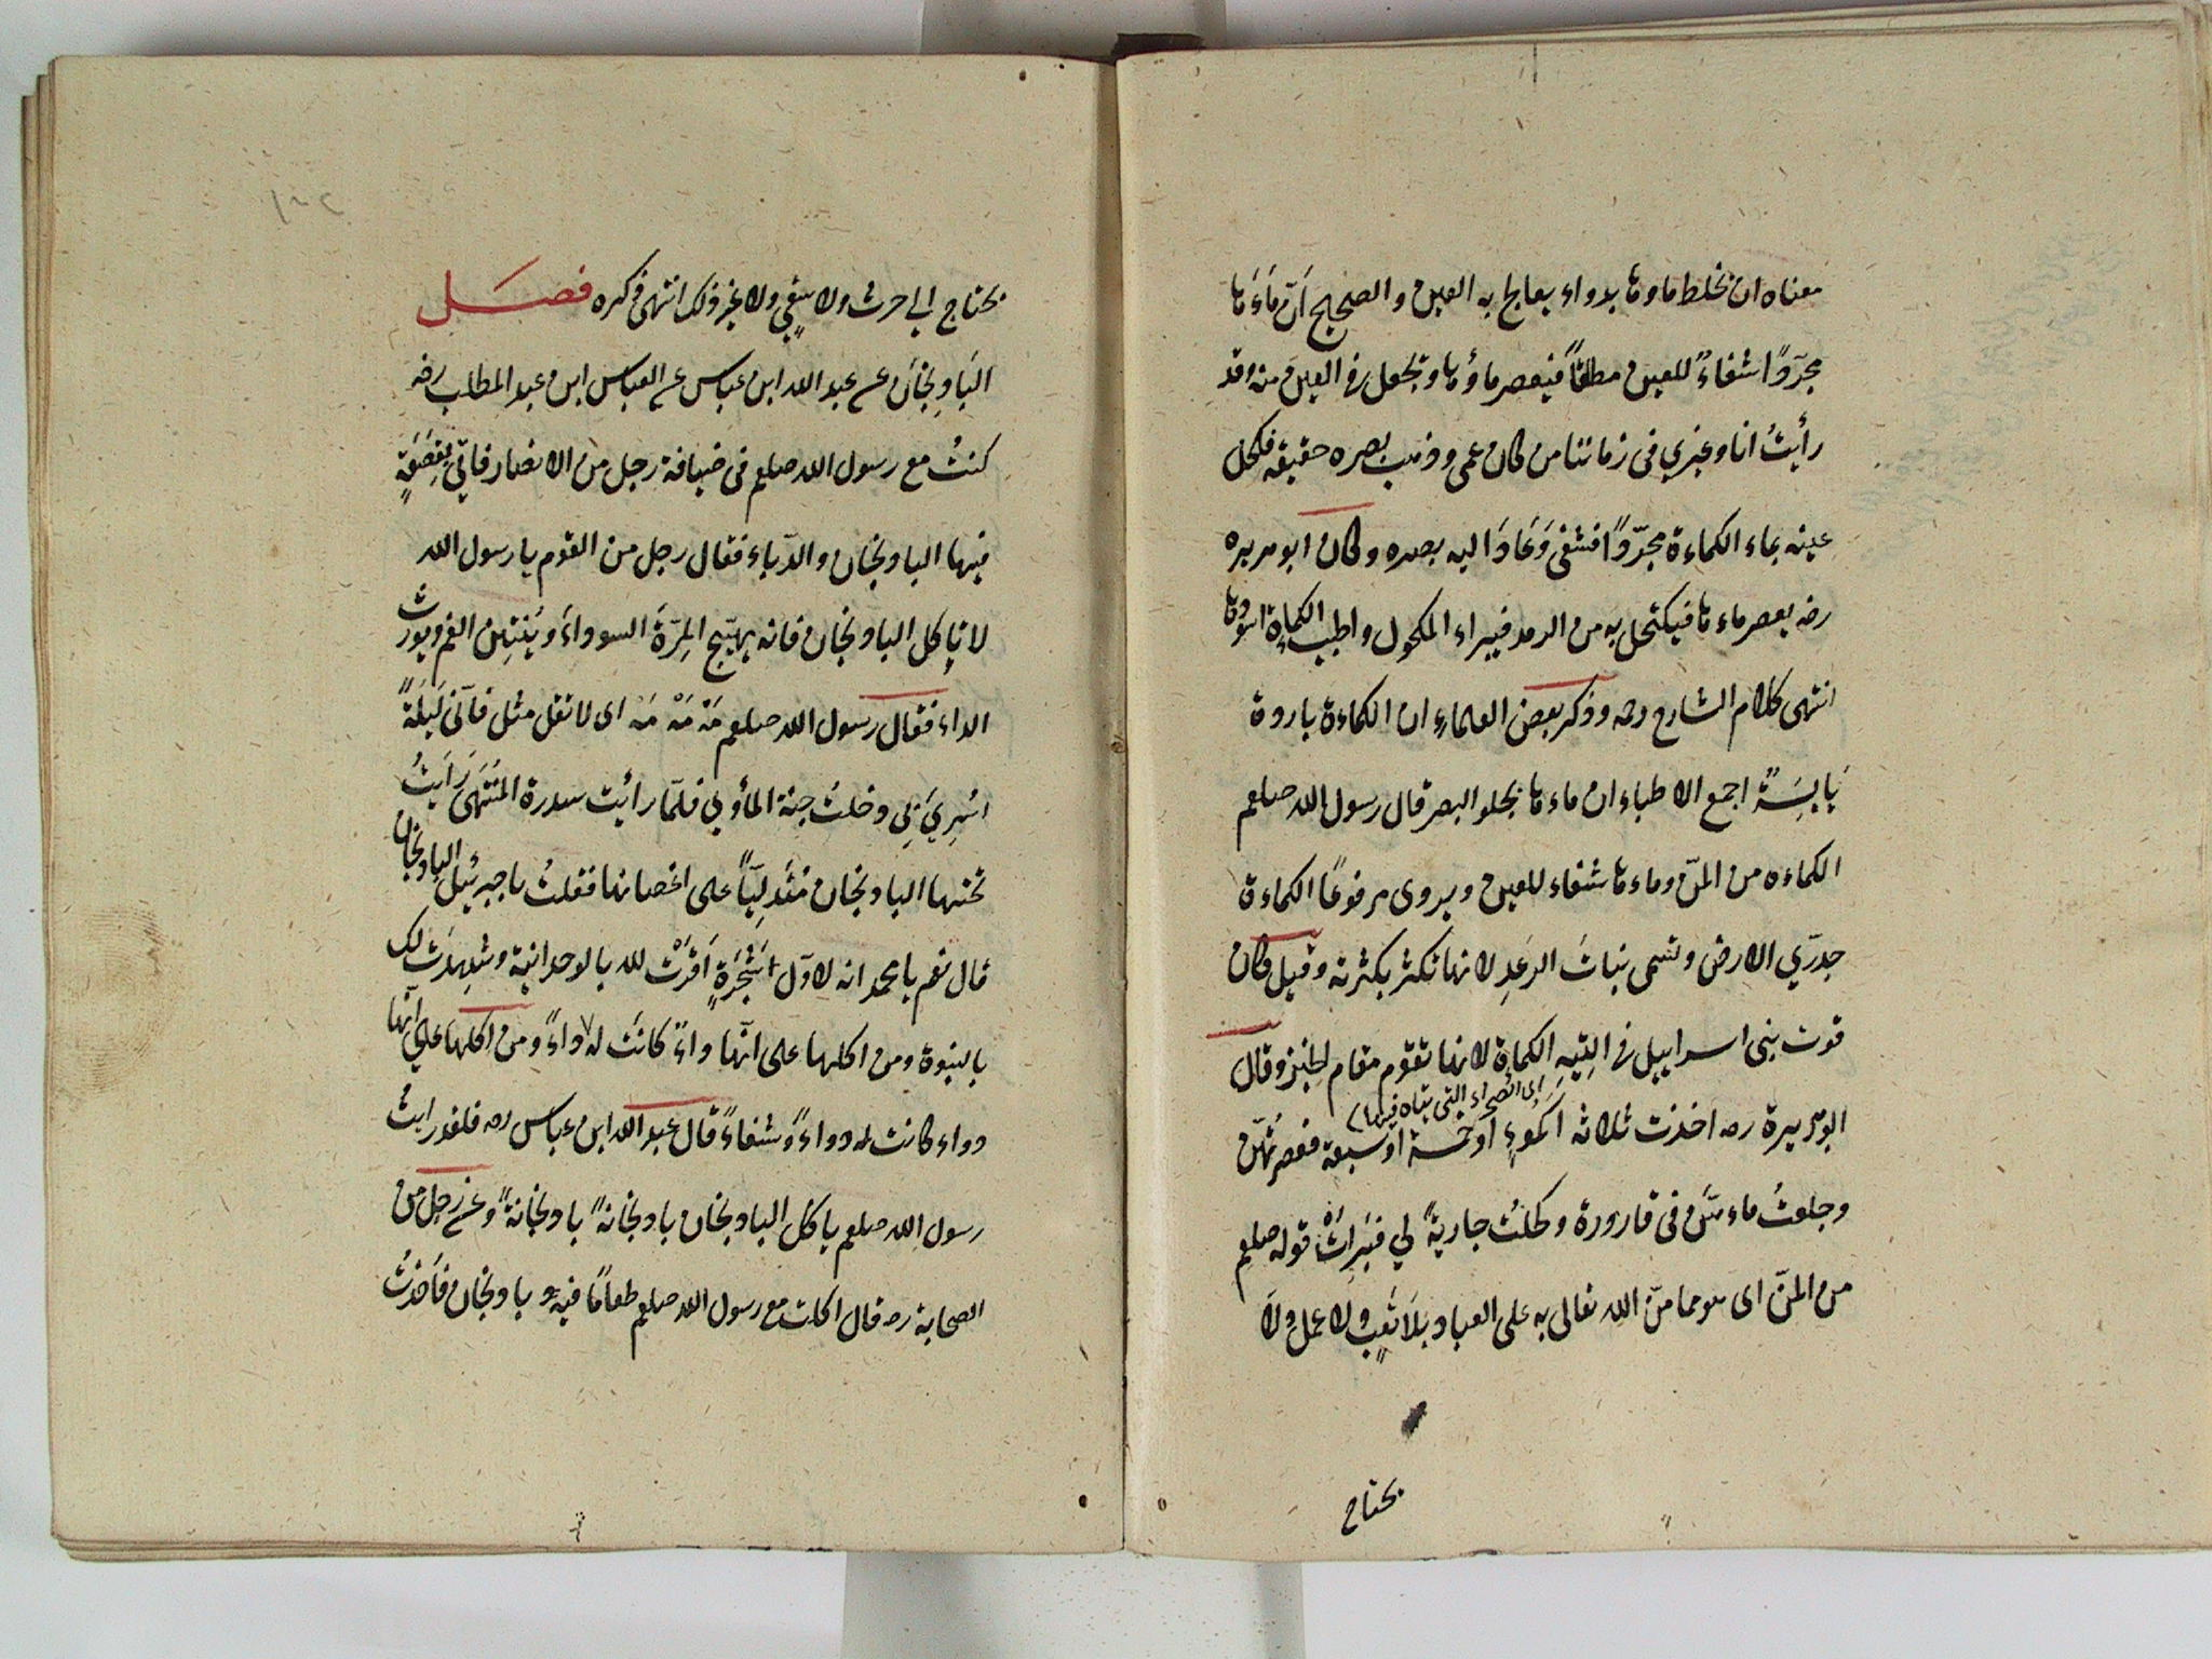 معناه ان يخلط ماوها بدواء يعالج به العين والصحيح اَنّ مَاءَها
مجرّدًا شفاءٌ للعين مطلقًا فيعصر ماؤها ويجعل في العين منه وقد
رأيتُ انا وغيري في زماننا من كان عمى وذهب بصره حقيقه فكحل
عينه بماء الكماءة مجرّدًا فشفى وَعَادَ اليه بصره وكان ابو هريره
رضه يعصر ماءها فيكتحل به من الرمد فيبراء المكحول واطيب الكماءة اسودها
انتهى كلام الشارح رحمه وذكر بعض العلماء ان الكماءة باردة
يَابِسَةٌ اجمع الاطباء ان ماءها يجلو البصر قال رسول الله صلعم
الكماءه من المنّ وماءها شفاء للعين ويروى مرفوعًا الكماءة
جدرّي الارض وتسمى بنباتَ الرعَدِ لانها تكثر بكثرته وقيل كان
قوت بنى اسراييل في التِيهِ الكماة لانها تقوم مقام الخبز وقال
اى الصحراء التى يتاه فيها
ابو هريرة رضه اخذت ثلاثه اكموءٍ او خمسة او سبعة فعصرتُهنّ
وجعلتُ ماءهنّ في قارورة وكحلتُ جاريةً لي فبَرِأتْ قوله صلعم
من المنّ اى هو مما منّ الله تعالى به على العباد بِلَا تَعبٍ ولا عملٍ وَلَا
يحتاج
يحتاج الى احرث ولا سقىٍ ولا غير ذلك انتهى ذكره فصـــل
البَادِنجَان عن عبد الله ابن عباس عن العباس ابن عبد المطلب رضه
كنتُ مع رسول الله صلعم فى ضيافة رجل من الانصار فاتي بقِصَعَةٍ
فيها البادنجان والدّباء فقال رجل من القوم يا رسول الله
لا ياكل البادنجان فانه يهيّج المِرّةَ السوداءَ ويُنتِن الفم ويورث
الداء فقال رسول الله صلعم مَهْ مَهْ مَه اى لا تقل مثل فاَنّى لَيلَةً
اسُرِيَ بِي دخلتُ جنة المأوي فلمّا رأيت سدرة المُنتَهَى رَاَيتُ
تحتها البادنجان متَدلِيّاً على اغصانها فقلتُ يا جبرئيل البادنجان
قال نعم يا محمد انه لاوّل شَجَرَةٍ اَقرّتْ لله بالوحدانية وشَهِدَت لك
بالنبوة ومن اكلها على انّها داءٌ كانَت له داءً ومن اكلها على انّها
دواء كانت له دواءً وشفاءً قال عبد الله ابن عباس رضه فلقد رايتُ
رسول الله صلعم ياكل البادنجان بادنجانةً بادنجانةً وعن رجل من
الصحابة رضه قال اكلت مع رسول الله صلعم طعامًا فيه بادنجان فَاَخذتُ